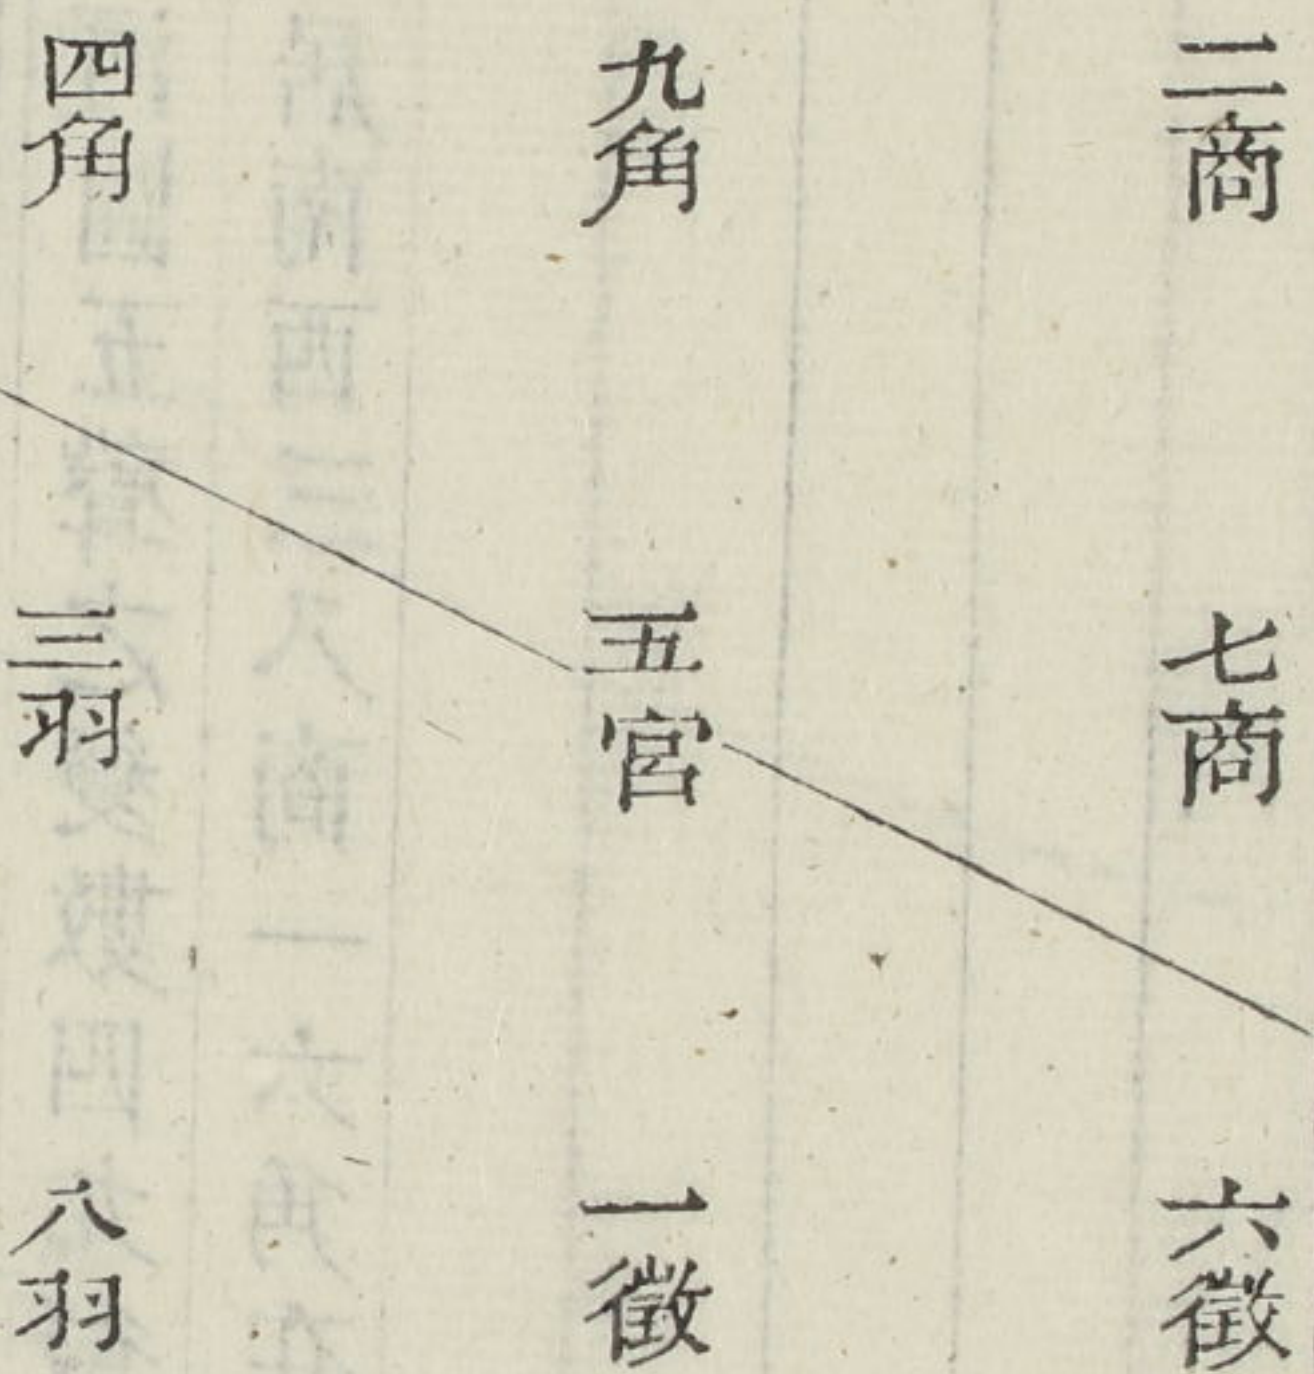 二商
七商
六徵
九角
五宮
一徵
四角
三羽
八羽